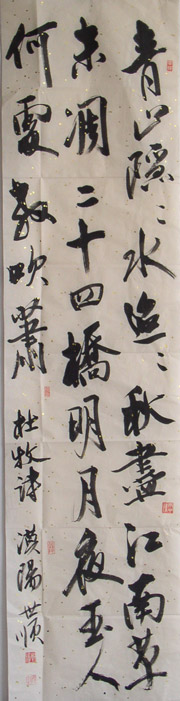 青山隐〻水迢〻秋盡江南草
未凋二十四橋明月夜玉人
何處教吹簫 杜牧诗 洪陽 世順